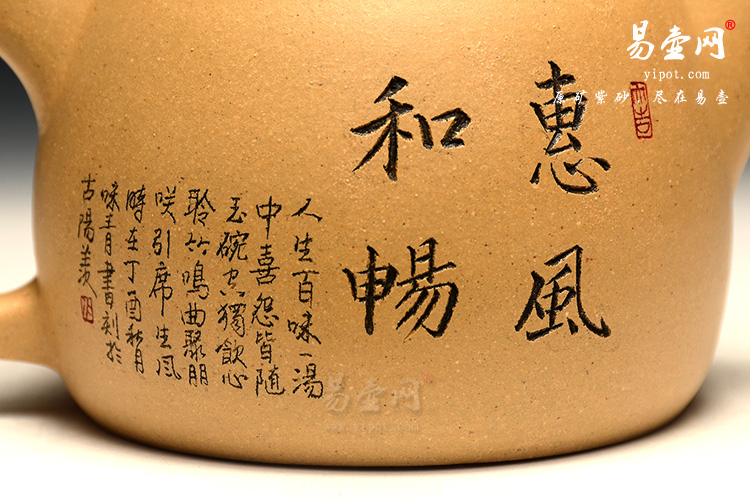 易壺网®
yipot.com
原矿紫砂，尽在易壺
惠風
和暢
人生百味一湯
中喜怨皆隨
玉碗空獨飲心
聆竹鳴曲聚朋
咲引席生風
時在丁酉秋月
味青書刻於
古陽羨
易壺网
www.yipot.com